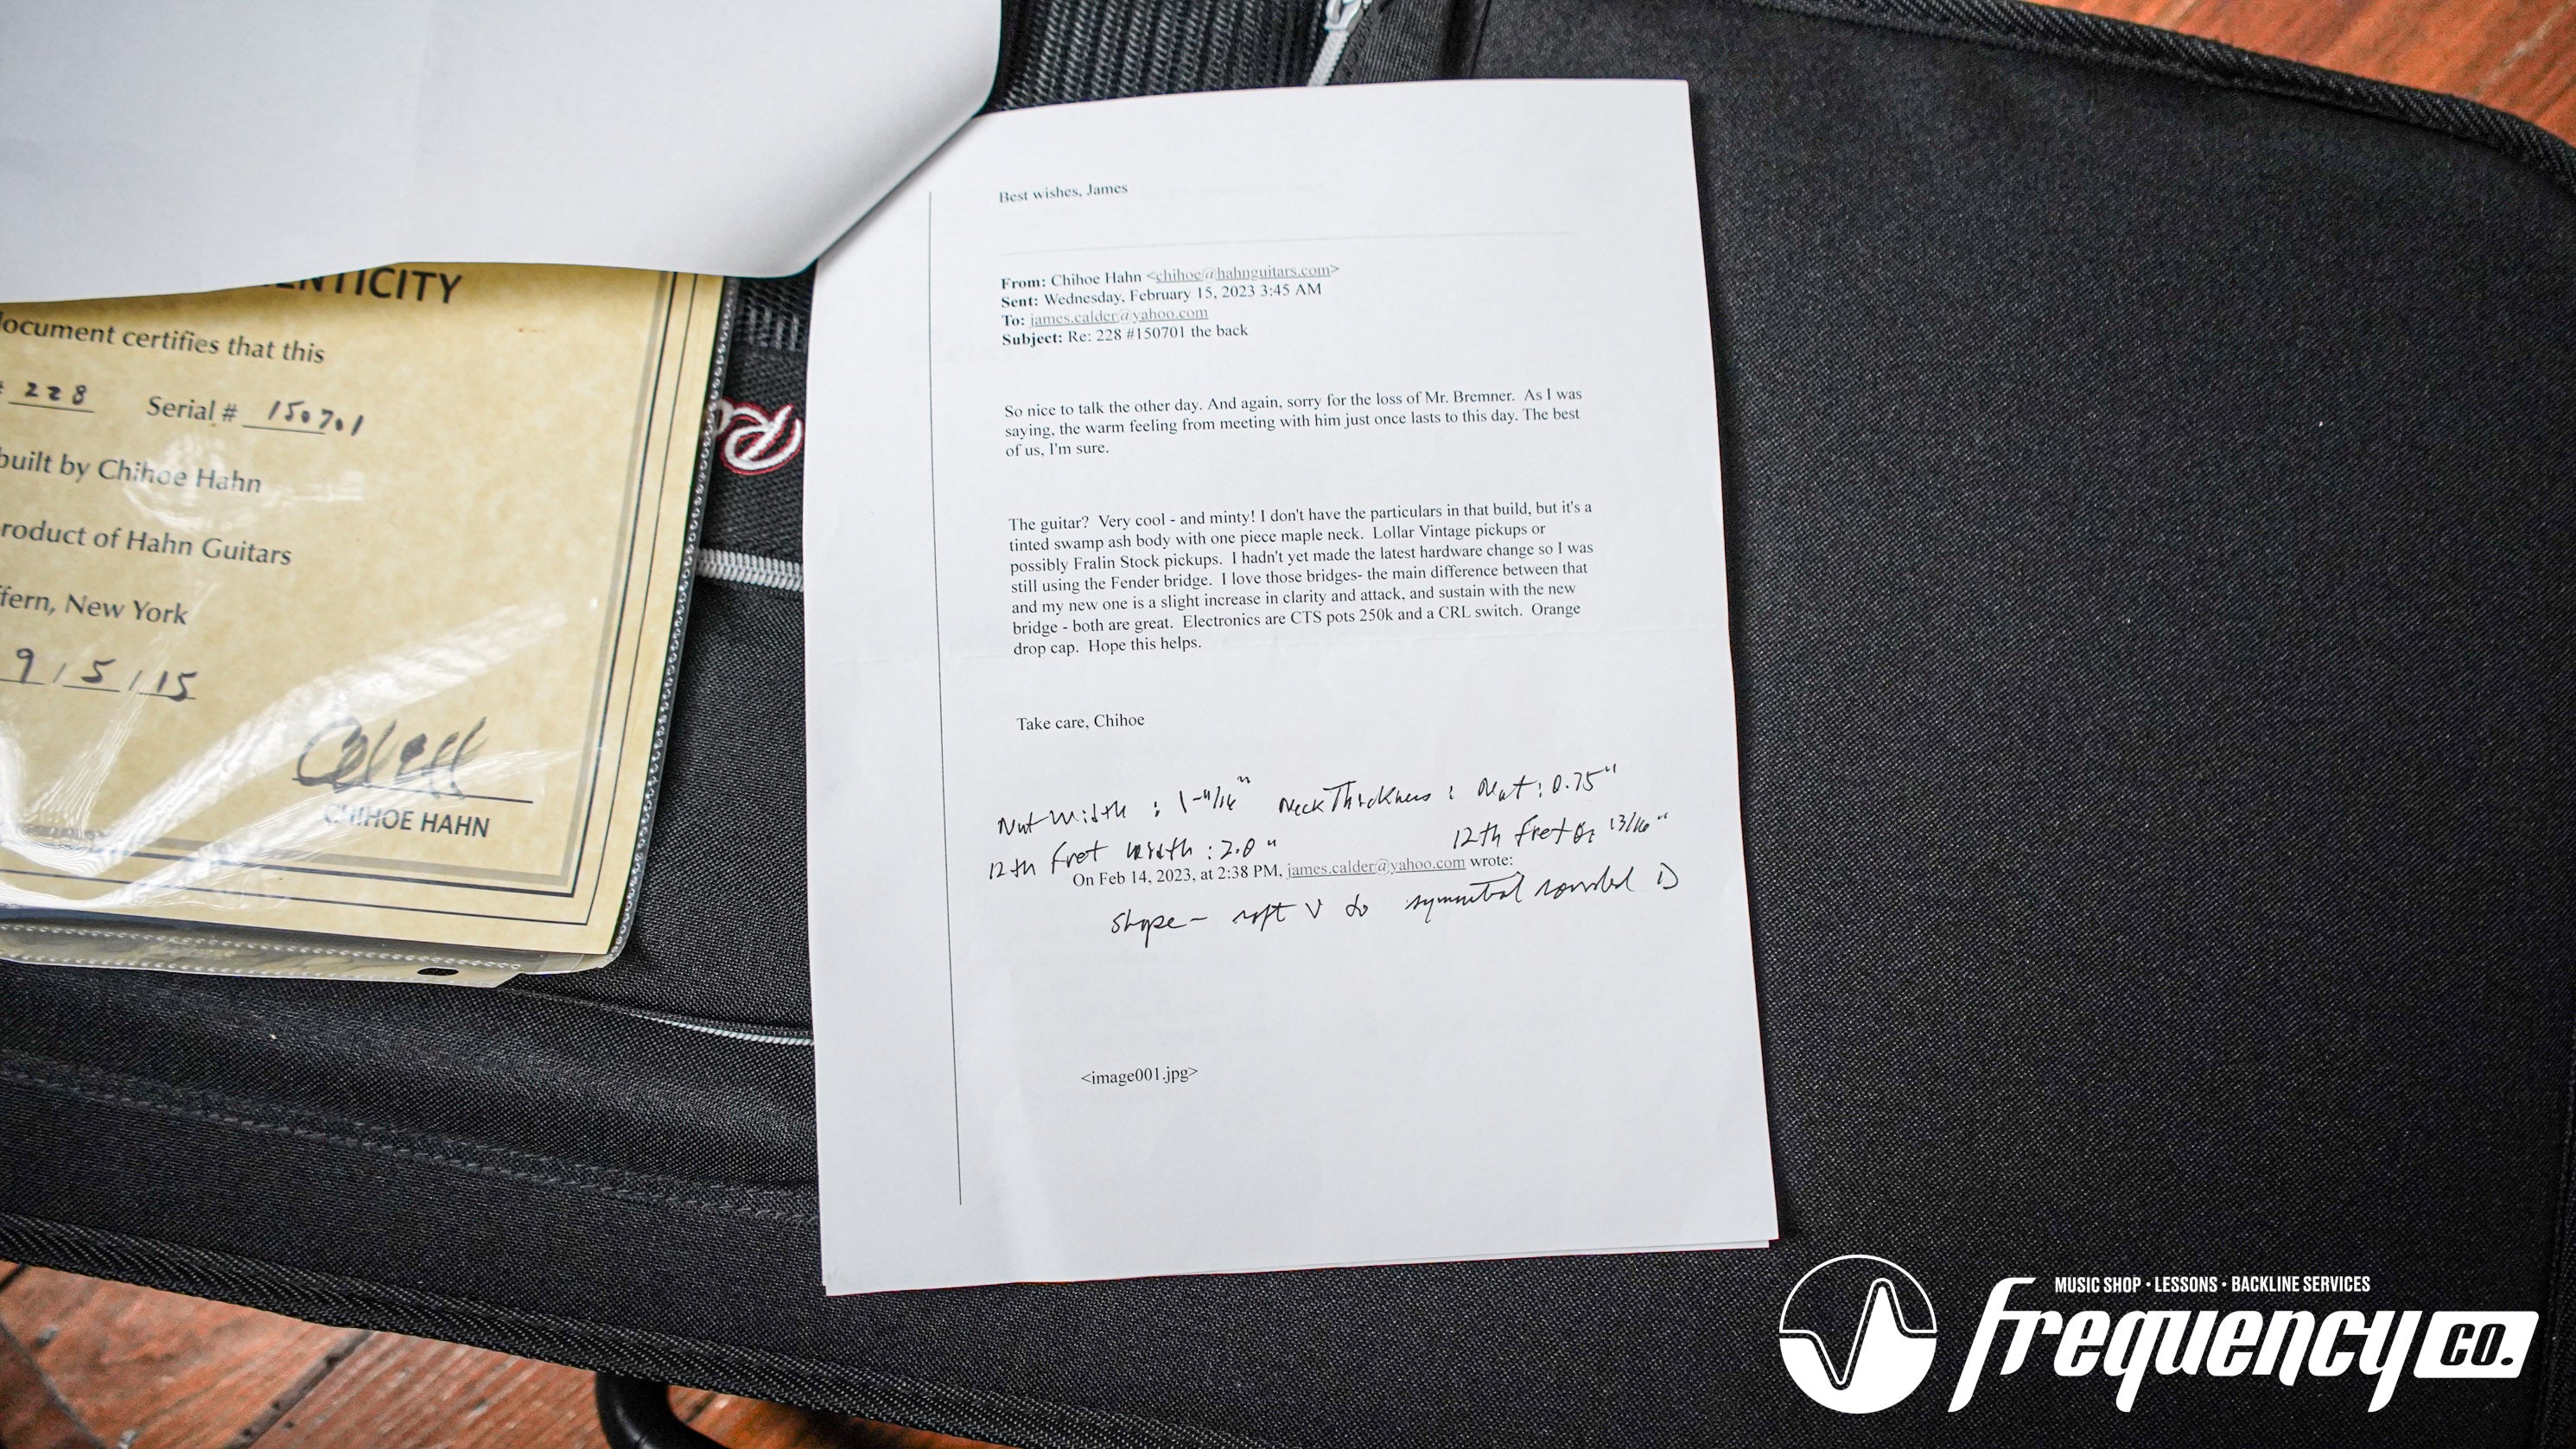 NTICITY
document certifies that this
# 228 Serial # 150701
built by Chihoe Hahn
product of Hahn Guitars
ffern, New York
9/5/15
CHIHOE HAHN
Ro
Best wishes, James
From: Chihoe Hahn <chihoe@hahnguitars.com>
Sent: Wednesday, February 15, 2023 3:45 AM
To: james.calder@yahoo.com
Subject: Re: 228 #150701 the back
So nice to talk the other day. And again, sorry for the loss of Mr. Bremner. As I was
saying, the warm feeling from meeting with him just once lasts to this day. The best
of us, I'm sure.
The guitar? Very cool - and minty! I don't have the particulars in that build, but it's a
tinted swamp ash body with one piece maple neck. Lollar Vintage pickups or
possibly Fralin Stock pickups. I hadn't yet made the latest hardware change so I was
still using the Fender bridge. I love those bridges- the main difference between that
and my new one is a slight increase in clarity and attack, and sustain with the new
bridge - both are great. Electronics are CTS pots 250k and a CRL switch. Orange
drop cap. Hope this helps.
Take care, Chihoe
Nut Width : 1-11/16" Neck Thickness : Nut : 0.75"
12th fret width : 2.0" 12th fret 13/16"
On Feb 14, 2023, at 2:38 PM, james.calder@yahoo.com wrote:
Shape - soft V to symmetrical rounded D
<image001.jpg>
MUSIC SHOP • LESSONS • BACKLINE SERVICES
frequency CO.